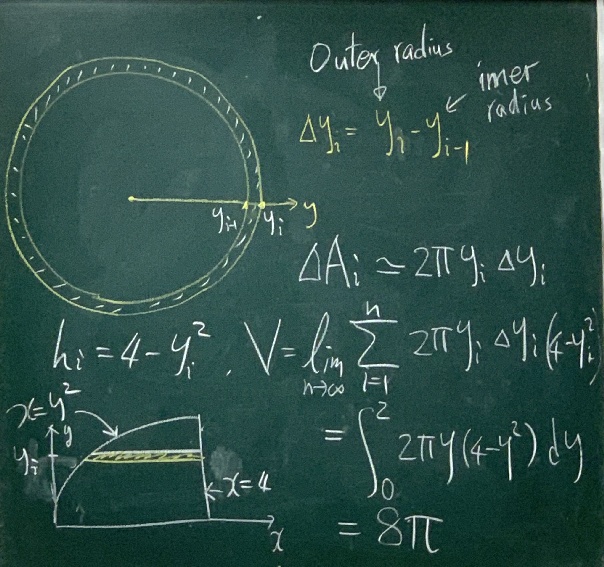 Outer radius
imer radius
Δyᵢ = yᵢ - yᵢ₋₁
yᵢ₋₁ yᵢ y
ΔAᵢ ≃ 2πyᵢ Δyᵢ
hᵢ = 4 - yᵢ². V = lim n→∞ Σ i=1 n 2πyᵢ Δyᵢ (4-yᵢ²)
x=y²
y
yᵢ
x=4
x
= ∫₀² 2πy(4-y²) dy
= 8π